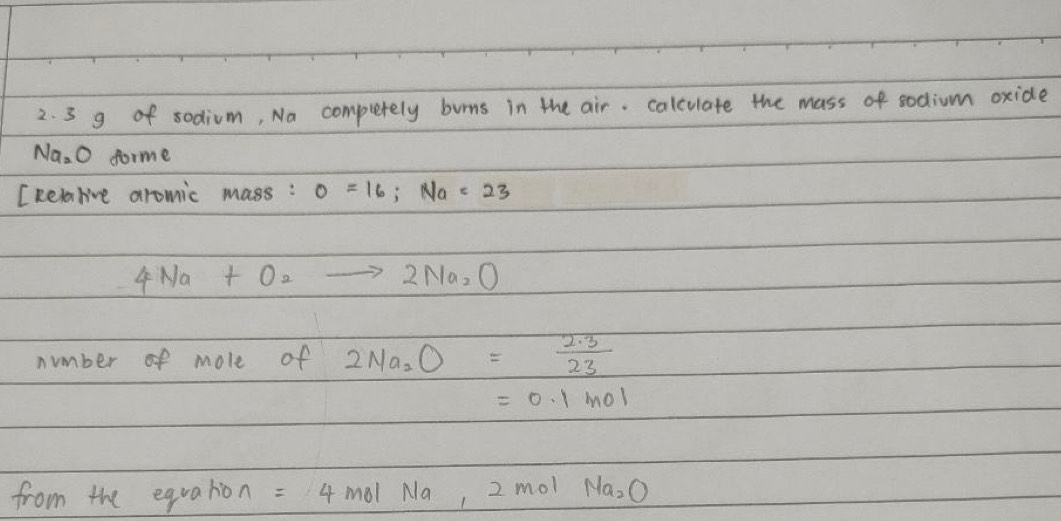 2.3 g of sodium, Na completely burns in the air. calculate the mass of sodium oxide
Na₂O forme
[Relative atomic mass : O = 16; Na = 23
4Na + O₂ → 2Na₂O
number of mole of 2Na₂O = 2.3/23
= 0.1 mol
from the equation = 4 mol Na, 2 mol Na₂O